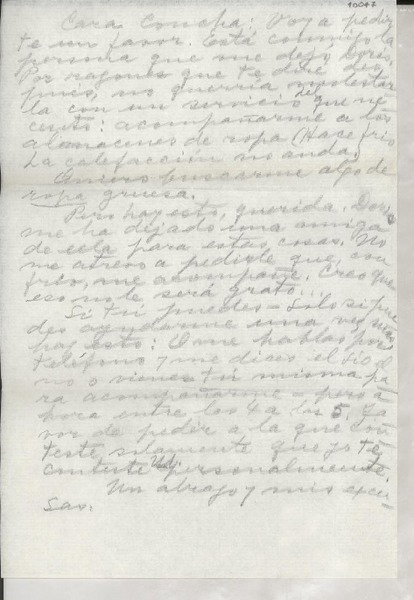 10047
Cara Concha: Voy a pedir
te un favor. Está conmigo la
persona que me dejó Doris.
Por razones que te diré des
pués, no querría molestar
la con un servicio del que ne
cesito: acompañarme a los
almacenes de ropa (Hace frío
La calefacción no anda.)
Quiero buscarme algo de
ropa gruesa.
Pero hay esto, querida. Doris
me ha dejado una amiga
de ella para estas cosas. No
me atrevo a pedirte que, con
frío, me acompañe. Creo que
eso no te será grato...
Si tú puedes = Solo si pue
des ayudarme una vez más
hay esto: O me hablas por
teléfono y me dices el sí o el
no o vienes tú misma pa
ra acompañarme = pero a
hora entre los 4 a los 5. Fa
vor de pedir a la que con
teste, solamente que yo te
conteste personalmente.
Un abrazo y mis excu
sas.